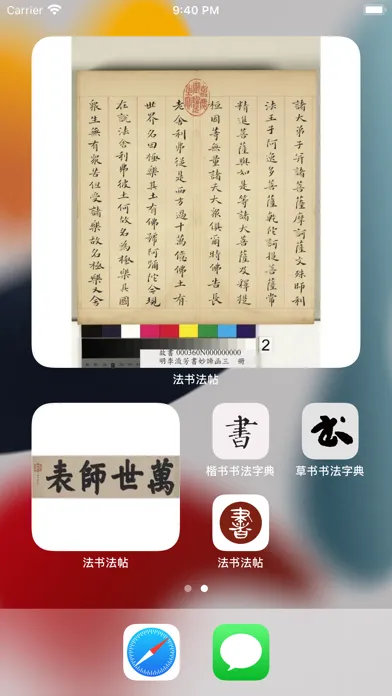 Carrier 9:40 PM
諸大弟子并諸菩薩摩訶薩文殊師利
法王子阿逸多菩薩乾陀訶提菩薩常
精進菩薩與如是等諸大菩薩及釋提
桓因等無量諸天大衆俱爾時佛告長
老舍利弗從是西方過十萬億佛土有
世界名曰極樂其土有佛號阿彌陀今現
在說法舍利弗彼土何故名為極樂其國
衆生無有衆苦但受諸樂故名極樂又舍
2
故書 000360N000000000
明李流芳書妙諦函三 冊
法书法帖
萬世師表
法书法帖
書
楷书书法字典
书
草书书法字典
書
法书法帖